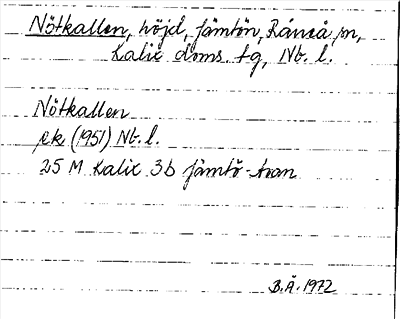 Nötkallen, höjd, Jämtön, Råneå sn,
Kalix doms. tg, Nb. l.
Nötkallen
ek (1951) Nb. l.
25 M Kalix 3b Jämtö-
B.Ä. 1972